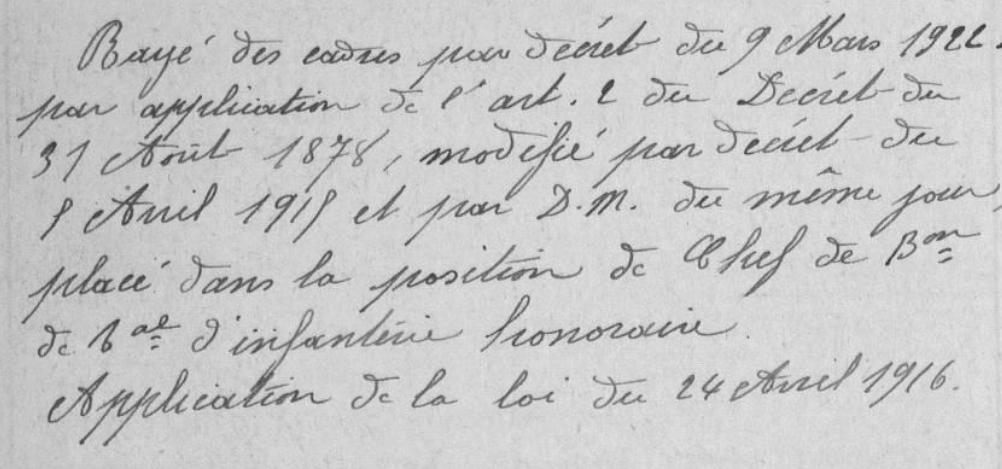 Rayé des cadres par decret du 9 Mars 1922.
par application de l'art. 2 du Decret du
31 Août 1878, modifié par decret du
5 Avril 1915 et par D.M. du même jour,
placé dans la position de Chef de Bon
de tal d'infanterie honoraire.
Application de la loi du 24 Avril 1916.